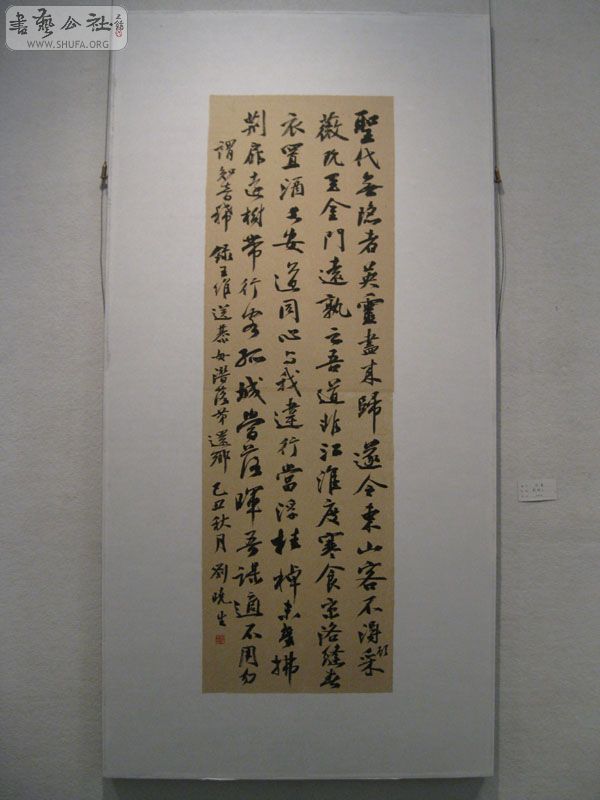 書藝公社
WWW.SHUFA.ORG
聖代無隐者英靈盡来歸遂令東山客不得顧采
薇既至金門遠孰云吾道非江淮度寒食京洛縫春
衣置酒长安道同心与我違行當浮桂棹未幾拂
荆扉遠樹帶行客孤城當落暉吾謀適不用勿
謂知音稀 録王維送綦毋潛落第還鄉 己丑秋月 劉曉生